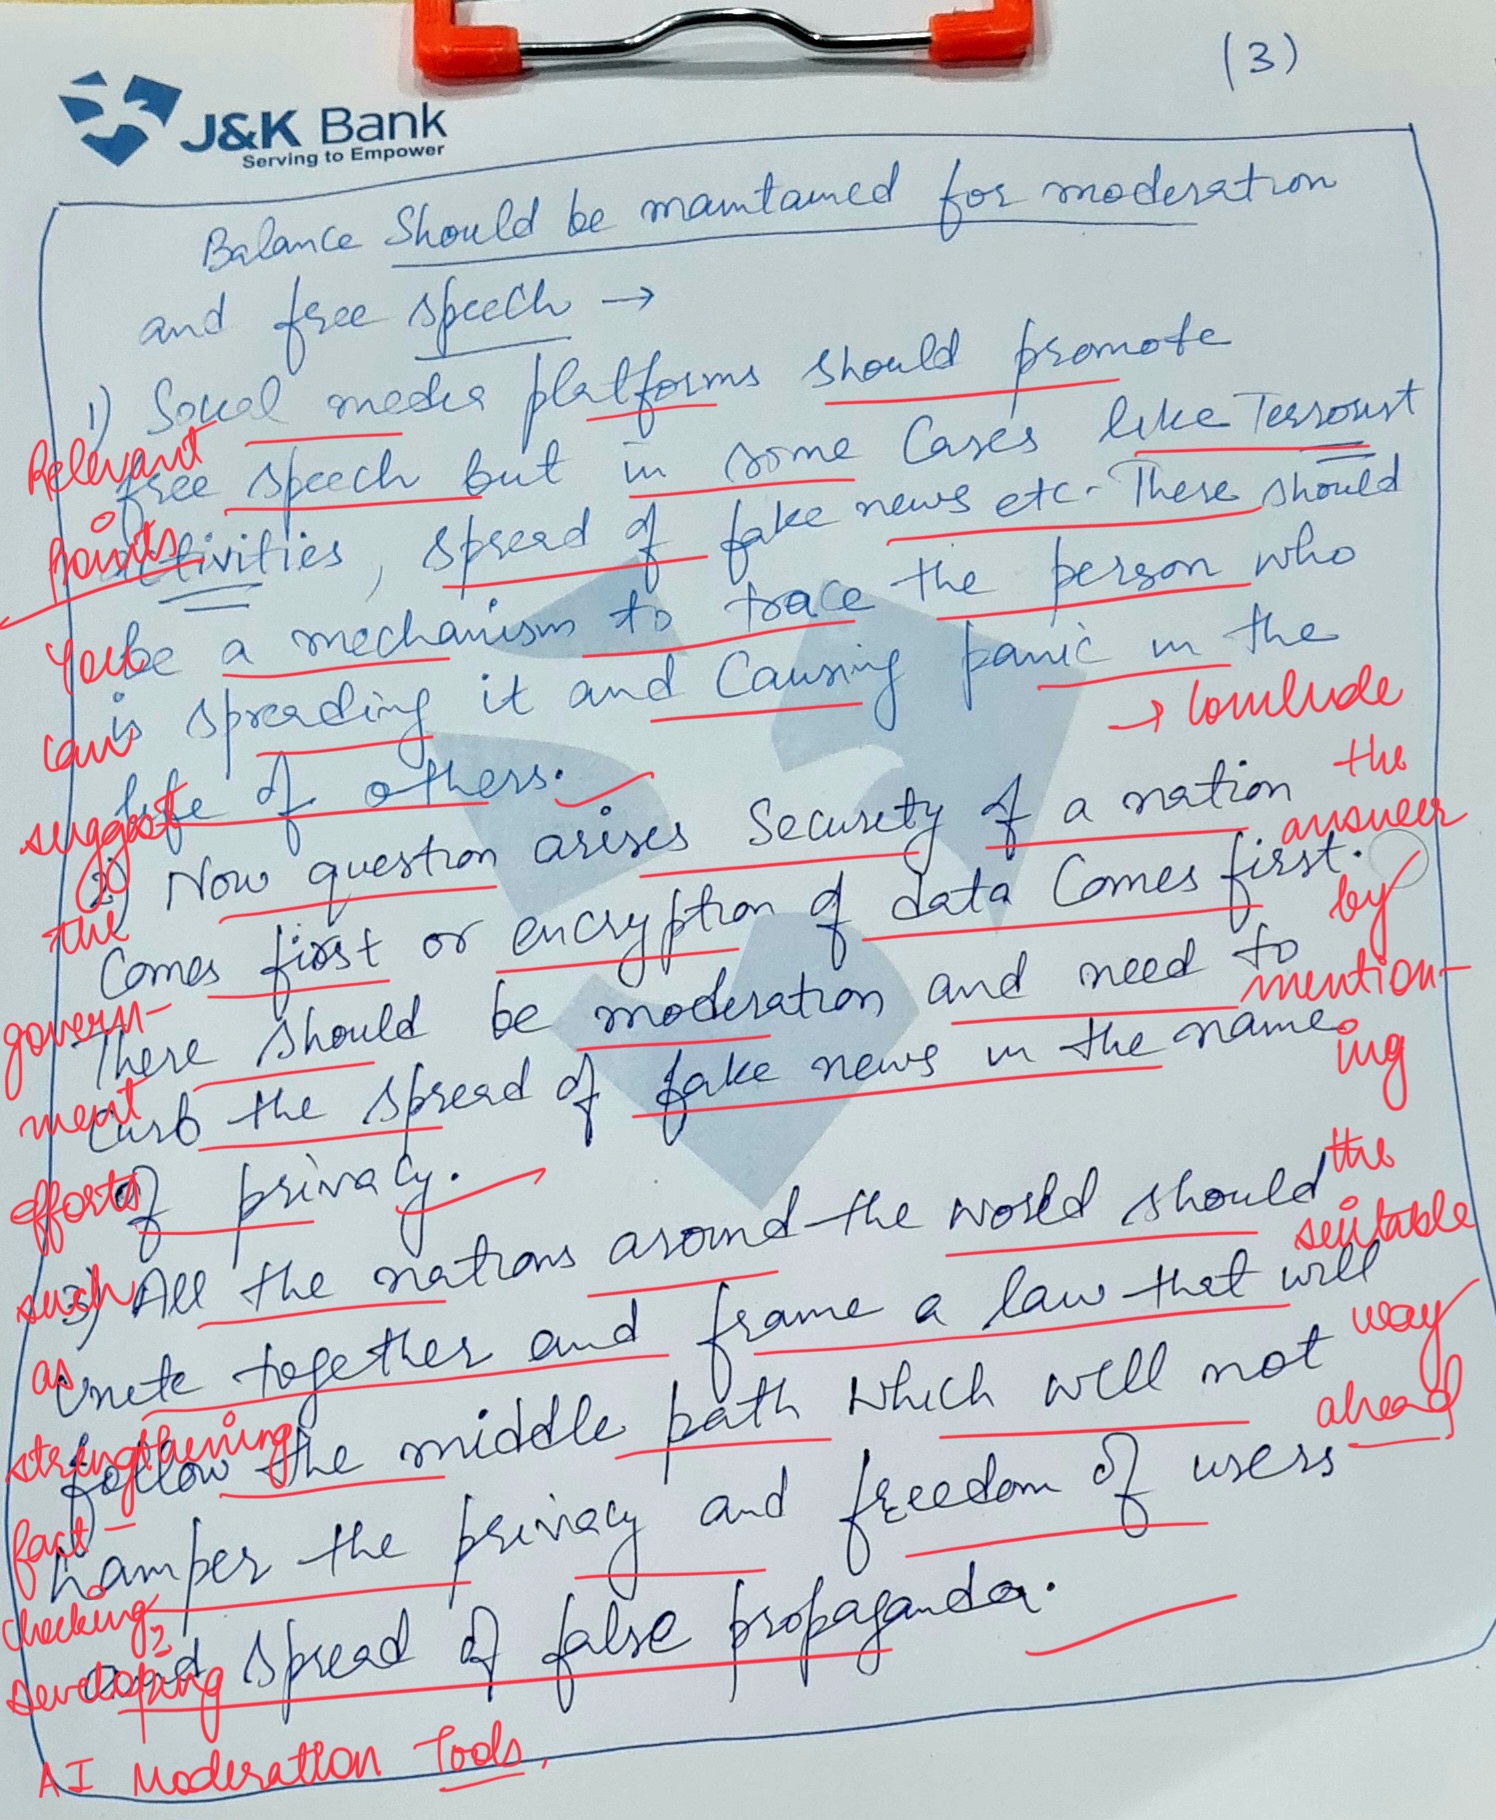 (3)
J&K Bank
Serving to Empower
Balance Should be maintained for moderation
and free speech →
1) Social media platforms should promote
free speech but in some Cases like Terrorist
activities, spread of fake news etc. There should
be a mechanism to trace the person who
is spreading it and Causing panic in the
life of others.
2) Now question arises Security of a nation
Comes first or encryption of data Comes first.
There should be moderation and need to
Curb the spread of fake news in the name
of privacy.
3) All the nations around the world should
unite together and frame a law that will
follow the middle path which will not
hamper the privacy and freedom of users
and spread of false propaganda.
Relevant
points
You
can
suggest
the
govern-
ment
efforts
such
as
strengthening
fact-
checking,
developing
AI Moderation Tools.
→ Conclude
the
answer
by
mention-
ing
the
suitable
way
ahead